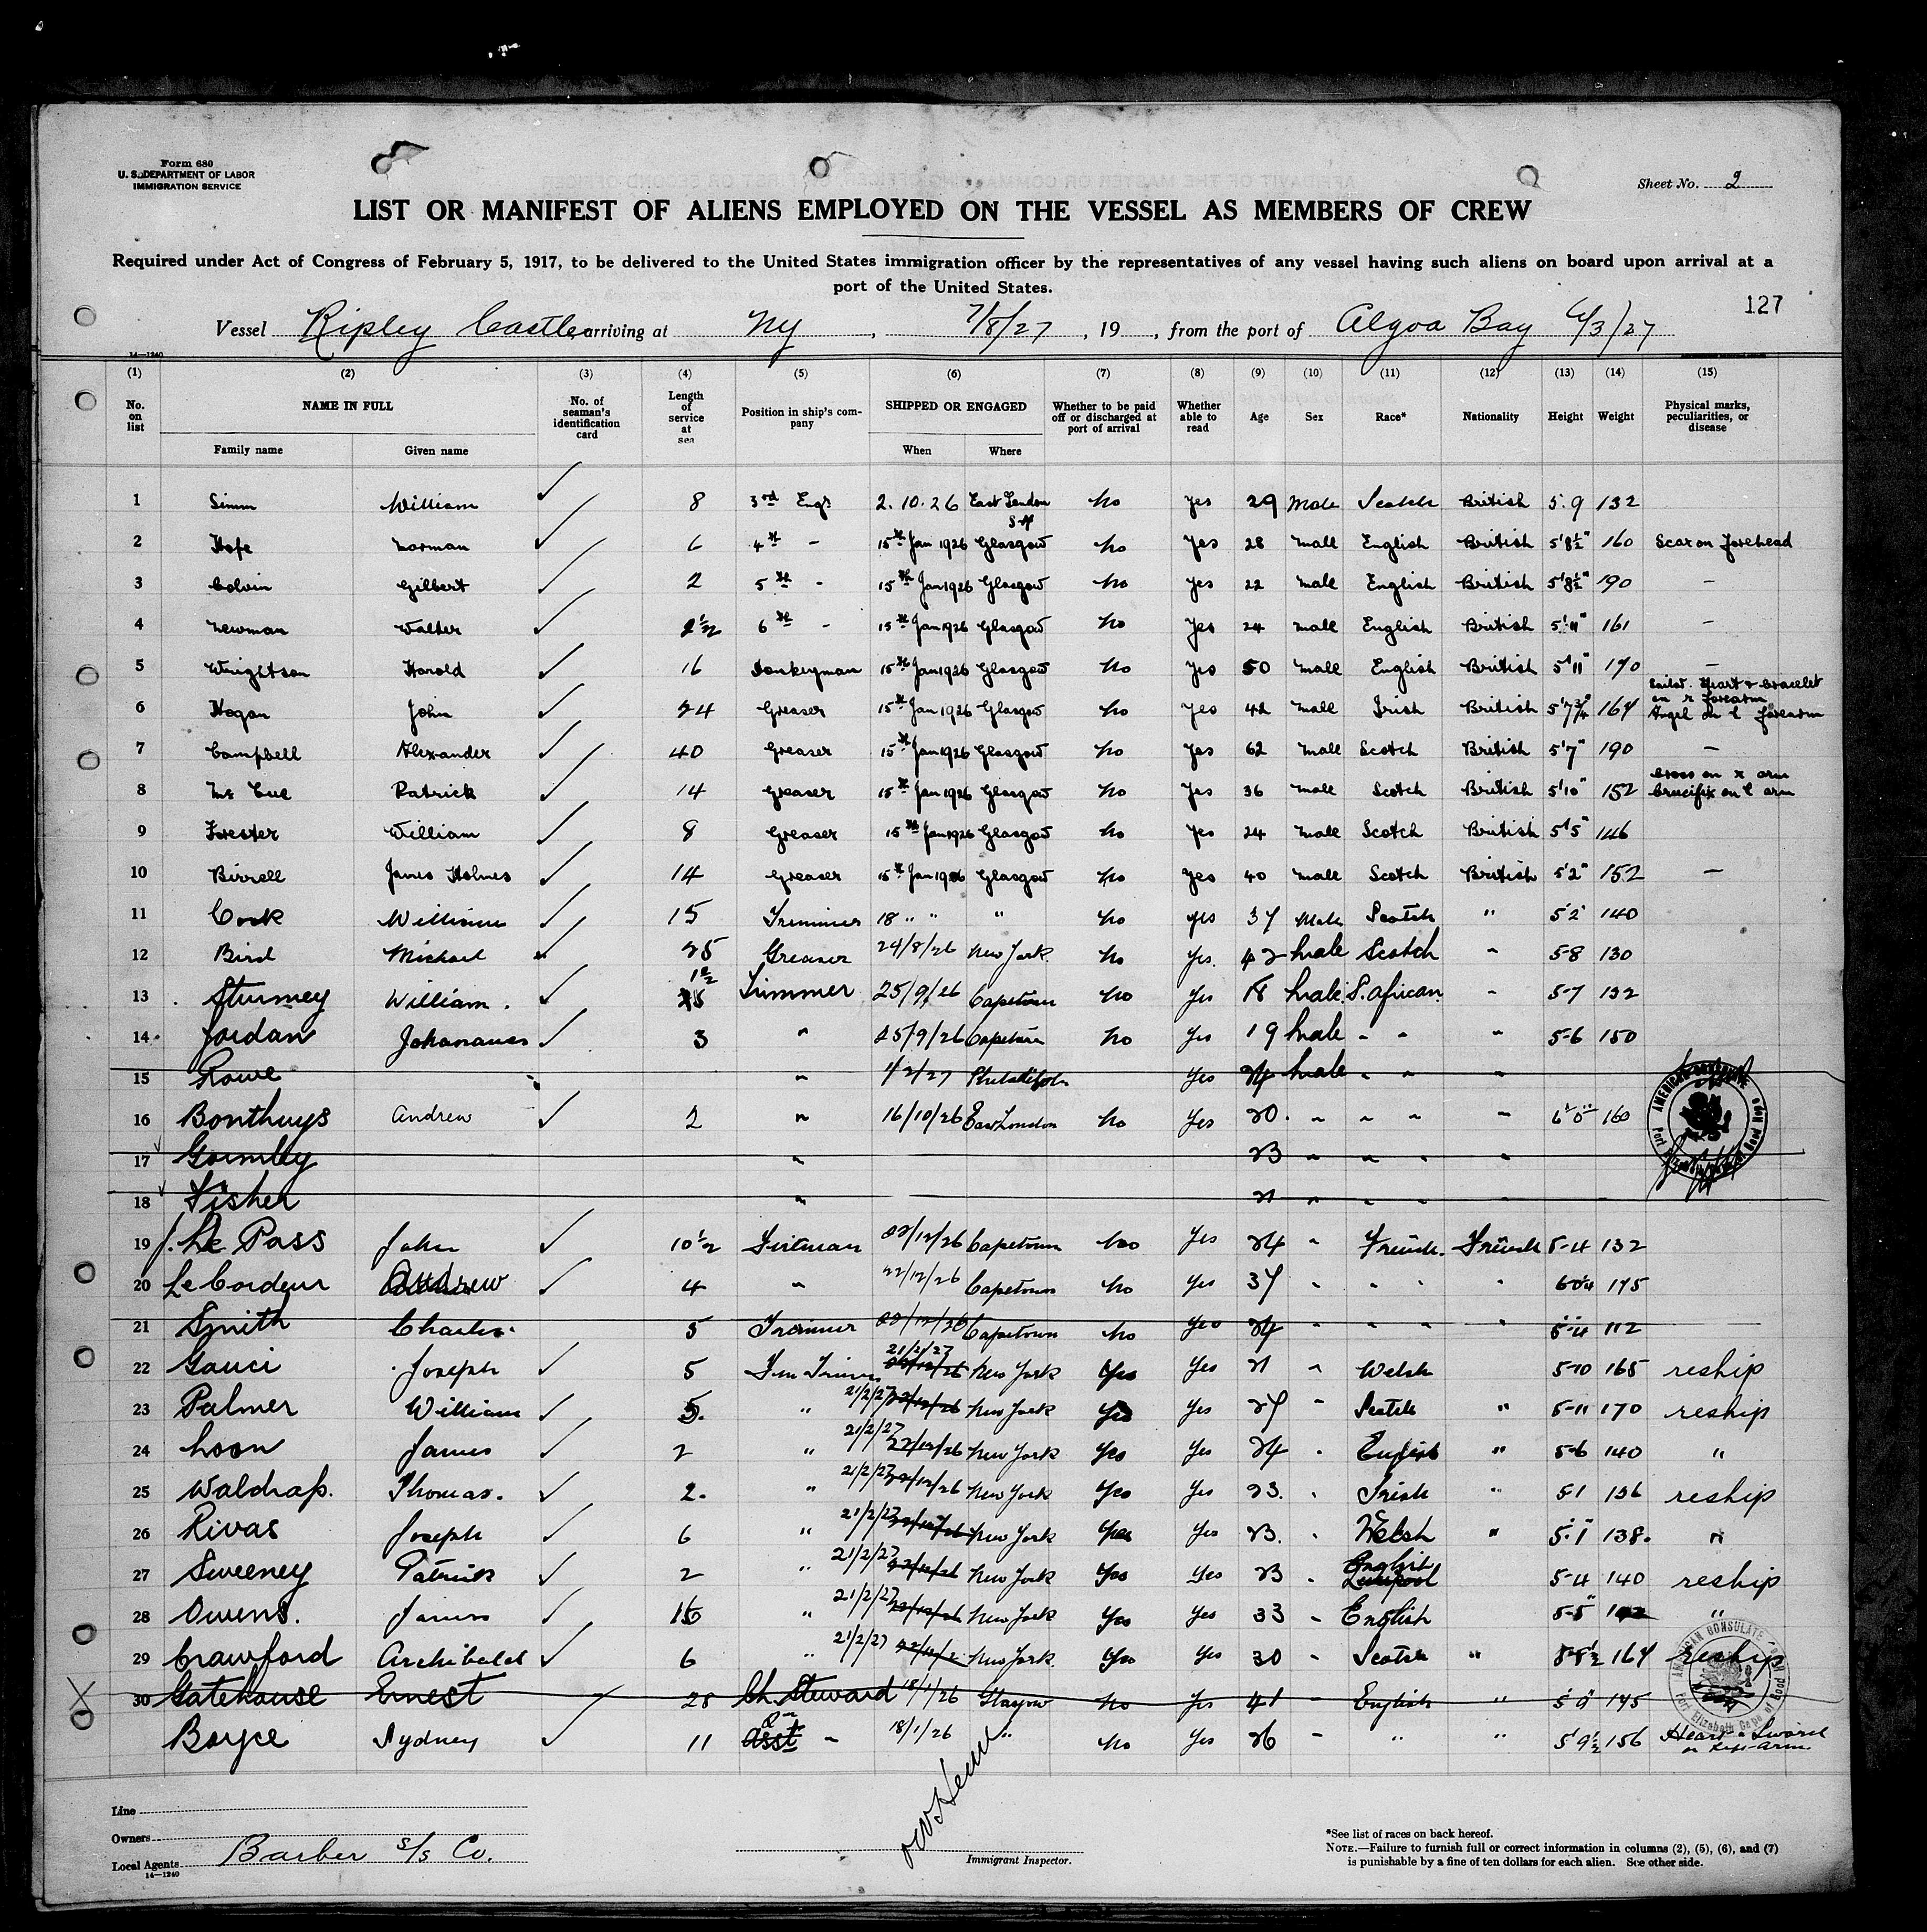 Form 680
U. S. DEPARTMENT OF LABOR
IMMIGRATION SERVICE
Sheet No. 2
LIST OR MANIFEST OF ALIENS EMPLOYED ON THE VESSEL AS MEMBERS OF CREW
Required under Act of Congress of February 5, 1917, to be delivered to the United States immigration officer by the representatives of any vessel having such aliens on board upon arrival at a
port of the United States.
127
Vessel Ripley Castle, arriving at NY, 7/8/27, 19 , from the port of Algoa Bay 6/3/27
14—1240
(1) (2) (3) (4) (5) (6) (7) (8) (9) (10) (11) (12) (13) (14) (15)
No. on list NAME IN FULL No. of seaman's identification card Length of service at sea Position in ship's company SHIPPED OR ENGAGED Whether to be paid off or discharged at port of arrival Whether able to read Age Sex Race* Nationality Height Weight Physical marks, peculiarities, or disease
Family name Given name When Where
1 Simm William 8 3rd Engr 2.10.26 East London S.A No Yes 29 Male Scotch British 5.9 132
2 Hofe Norman 6 4th - 15th Jan 1926 Glasgow No Yes 28 Male English British 5'8½" 160 Scar on forehead
3 Colvin Gilbert 2 5th - 15th Jan 1926 Glasgow No Yes 22 Male English British 5'8½" 190 -
4 Newman Walter 2½ 6th - 15th Jan 1926 Glasgow No Yes 24 Male English British 5'11" 161 -
5 Wrightson Harold 16 Donkeyman 15th Jan 1926 Glasgow No Yes 50 Male English British 5'11" 170 -
6 Hogan John 24 Greaser 15th Jan 1926 Glasgow No Yes 42 Male Irish British 5'7¾" 164 Sailor. Heart & bracelet on r forearm Angel on l forearm
7 Campbell Alexander 40 Greaser 15th Jan 1926 Glasgow No Yes 62 Male Scotch British 5'7" 190 -
8 Mc Cue Patrick 14 Greaser 15th Jan 1926 Glasgow No Yes 36 Male Scotch British 5'10" 152 Cross on r arm Crucifix on l arm
9 Forester William 8 Greaser 15th Jan 1926 Glasgow No Yes 24 Male Scotch British 5'5" 146
10 Birrell James Holmes 14 Greaser 15th Jan 1926 Glasgow No Yes 40 Male Scotch British 5'2" 152 -
11 Cook William 15 Trimmer 18 " " " No yes 37 Male Scotch " 5'2" 140
12 Bird Michael 25 Greaser 24/8/26 New York No Yes. 42 Male Scotch " 5-8 130
13 Sturmey William. 1½ Trimmer 25/9/26 Capetown No Yes 18 Male S. African " 5-7 132
14 Jordan Johananes 3 " 25/9/26 Capetown No Yes 19 Male " " " 5-6 150
15 Rowe " 1/2/27 Philadelphia Yes 24 Male " " "
16 Bonthuys Andrew 2 " 16/10/26 East London No Yes 20 " " " " 6'0" 160
17 Gormley " 23 " " " "
18 Fisher " 21 " " " "
19 Le Pass John 10½ Fireman 22/12/26 Capetown No Yes 24 " French. French 5-4 132
20 Le Cordeur Andrew 4 " 22/12/26 Capetown No Yes 37 " " " " 175
21 Smith Charles 5 Trimmer 22/12/26 Capetown No Yes 24 " " " " 5-4 112
22 Gauci Joseph 5 21/2/27 New York Yes Yes 21 " Welsh 5-10 165 reship
23 Palmer William 5. " 21/2/27 22/12/26 New York Yes Yes 27 " Scotch " 5-11 170 reship
24 Loon James 2 " 21/2/27 22/12/26 New York Yes Yes 24 " English " 5-6 140 "
25 Waldraf. Thomas. 2. " 21/2/27 22/12/26 New York Yes Yes 23. " Irish " 5-1 136 reship
26 Rivas Joseph 6 " 21/2/27 22/12/26 New York Yes Yes 23. " Welsh " 5.1 138. "
27 Sweeney Patrick 2 " 21/2/27 22/12/26 New York Yes Yes 23 " English Liverpool 5-4 140 reship
28 Owens. James 16 " 21/2/27 22/12/26 New York Yes Yes 33 " English 5-5" "
29 Crawford Archibald 6 " 21/2/27 New York. Yes Yes 30 " Scotch " 5-8½ 164 reship
30 Gatehouse Ernest 28 Ch. Steward 18/1/26 Glasgow No Yes 41 - English " 5'9" 145
Boyce Sydney 11 2nd Asst - 18/1/26 " No Yes 26 - " " 5'9½ 156 Heart & Sword on left arm
AMERICAN CONSULATE Port Elizabeth Cape of Good Hope
AMERICAN CONSULATE Port Elizabeth Cape of Good Hope
Line
Owners
Local Agents Barber S/S Co.
14—1240
Immigrant Inspector.
*See list of races on back hereof.
NOTE.—Failure to furnish full or correct information in columns (2), (5), (6), and (7)
is punishable by a fine of ten dollars for each alien. See other side.